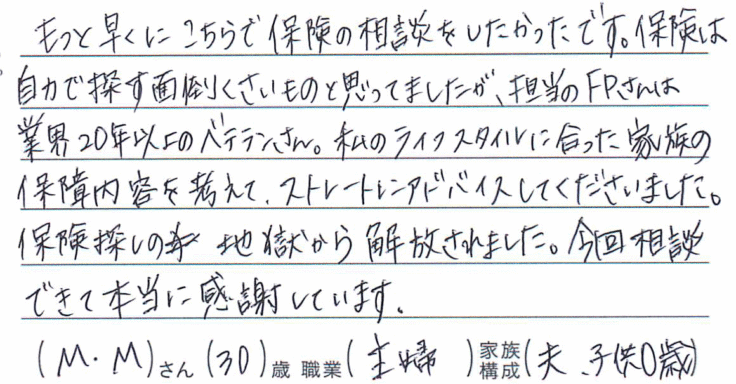 もっと早くにこちらで保険の相談をしたかったです。保険は
自力で探す面倒くさいものと思ってましたが、担当のFPさんは
業界20年以上のベテランさん。私のライフスタイルに合った家族の
保障内容を考えて、ストレートにアドバイスしてくださいました。
保険探しの 地獄から解放されました。今回相談
できて本当に感謝しています。
(M・M)さん(30)歳 職業(主婦)家族構成(夫、子供0歳)